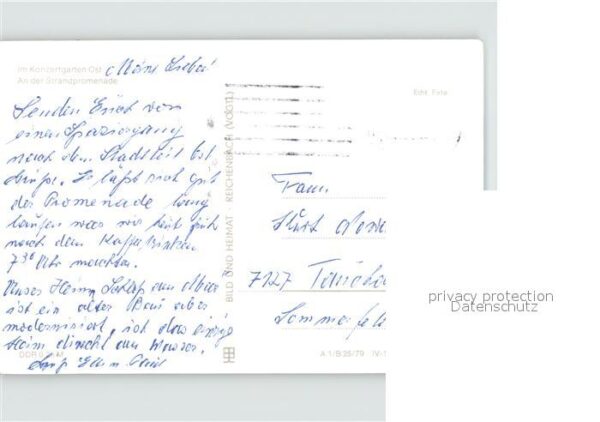 Im Konzertgarten Ost
An der Strandpromenade
Meine Lieben
Senden Euch von
einem Spaziergang
nach dem Stadtteil Ost
Grüße. Es läßt sich gut
der Promenade
laufen was wir heut früh
nach dem Kaffeetrinken
7 30 Uhr machten.
Unser Heim
ist ein alter Bau aber
modernisiert, ist das einzige
Heim direkt am Wasser.
DDR M
BILD UND HEIMAT REICHENBACH (VOGTL)
Echt Foto
Fam.
Kurt
7127 Taucha
Sommerfeld
A 1/B 25/79 IV-1
privacy protection
Datenschutz